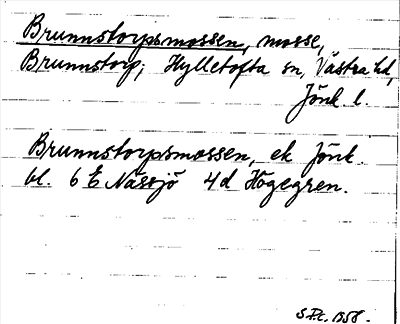 Brunnstorpsmossen, mosse,
Brunnstorp; Hylletofta sn, Västra hd,
Jönk l.
Brunnstorpsmossen, ek Jönk.
bl. 6 E Nässjö 4d Högegren.
1958.